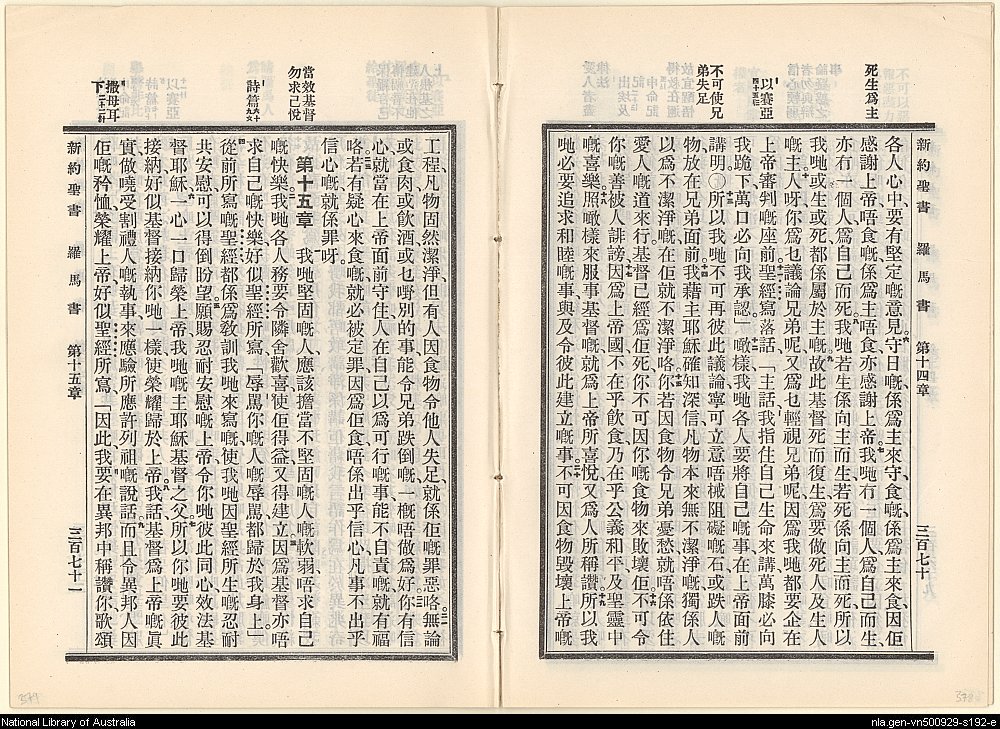 新約聖書 羅馬書 第十四章 三百七十
死生爲主
以賽亞
不可使兄弟失足
各人心中要有堅定嘅意見守日嘅係爲主來守食嘅係爲主來食因佢
感謝上帝唔食嘅係爲主唔食亦感謝上帝我哋冇一個人爲自己而生
亦冇一個人爲自己而死我哋若生係向主而生若死係向主而死所以
我哋或生或死都係屬於主嘅故此基督死而復生爲要做死人及生人
嘅主人呀你爲乜議論兄弟呢又爲乜輕視兄弟呢因爲我哋都要企在
上帝審判嘅座前聖經寫落話「主話我指住自己生命來講萬膝必向
我跪下萬口必向我承認」噉樣我哋各人要將自己嘅事在上帝面前
講明〇所以我哋不可再彼此議論寧可立意唔棫阻礙嘅石或跌人嘅
物放在兄弟面前我藉主耶穌確知深信凡物本來無不潔淨嘅獨係人
以爲不潔淨嘅在佢就不潔淨咯你若因食物令兄弟憂愁就唔係依住
愛人嘅道來行基督已經爲佢死你不可因你嘅食物來敗壞佢不可令
你嘅善被人誹謗因爲上帝國不在乎飲食乃在乎公義和平及聖靈中
嘅喜樂照噉樣來服事基督嘅就爲上帝所喜悅又爲人所稱讚所以我
哋必要追求和睦嘅事與及令彼此建立嘅事不可因食物毀壞上帝嘅
當效基督勿求己悅
詩篇
撒母耳下
工程凡物固然潔淨但有人因食物令他人失足就係佢嘅罪惡咯無論
或食肉或飲酒或乜嘢別的事能令兄弟跌倒嘅一概唔做爲好你有信
心就當在上帝面前守住人在自己以爲可行嘅事能不自責嘅就有福
咯若有疑心來食嘅就必被定罪因爲佢食唔係出乎信心凡事不出乎
信心嘅就係罪呀
第十五章 我哋堅固嘅人應該擔當不堅固嘅人嘅軟弱唔求自己
嘅快樂我哋各人務要令隣舍歡喜使佢得益又得建立因爲基督亦唔
求自己嘅快樂好似聖經所寫「辱罵你嘅人嘅辱罵都歸於我身上」
從前所寫嘅聖經都係爲教訓我哋來寫嘅使我哋因聖經所生嘅忍耐
共安慰可以得倒盼望願賜忍耐安慰嘅上帝令你哋彼此同心效法基
督耶穌一心一口歸榮上帝我哋嘅主耶穌基督之父所以你哋要彼此
接納好似基督接納你哋一樣使榮耀歸於上帝我話基督爲上帝嘅眞
實做嘵受割禮人嘅執事來應驗所應許列祖嘅說話而且令異邦人因
佢嘅矜恤榮耀上帝好似聖經所寫「因此我要在異邦中稱讚你歌頌
新約聖書 羅馬書 第十五章 三百七十一
379
378
National Library of Australia
nla.gen-vn500929-s192-e